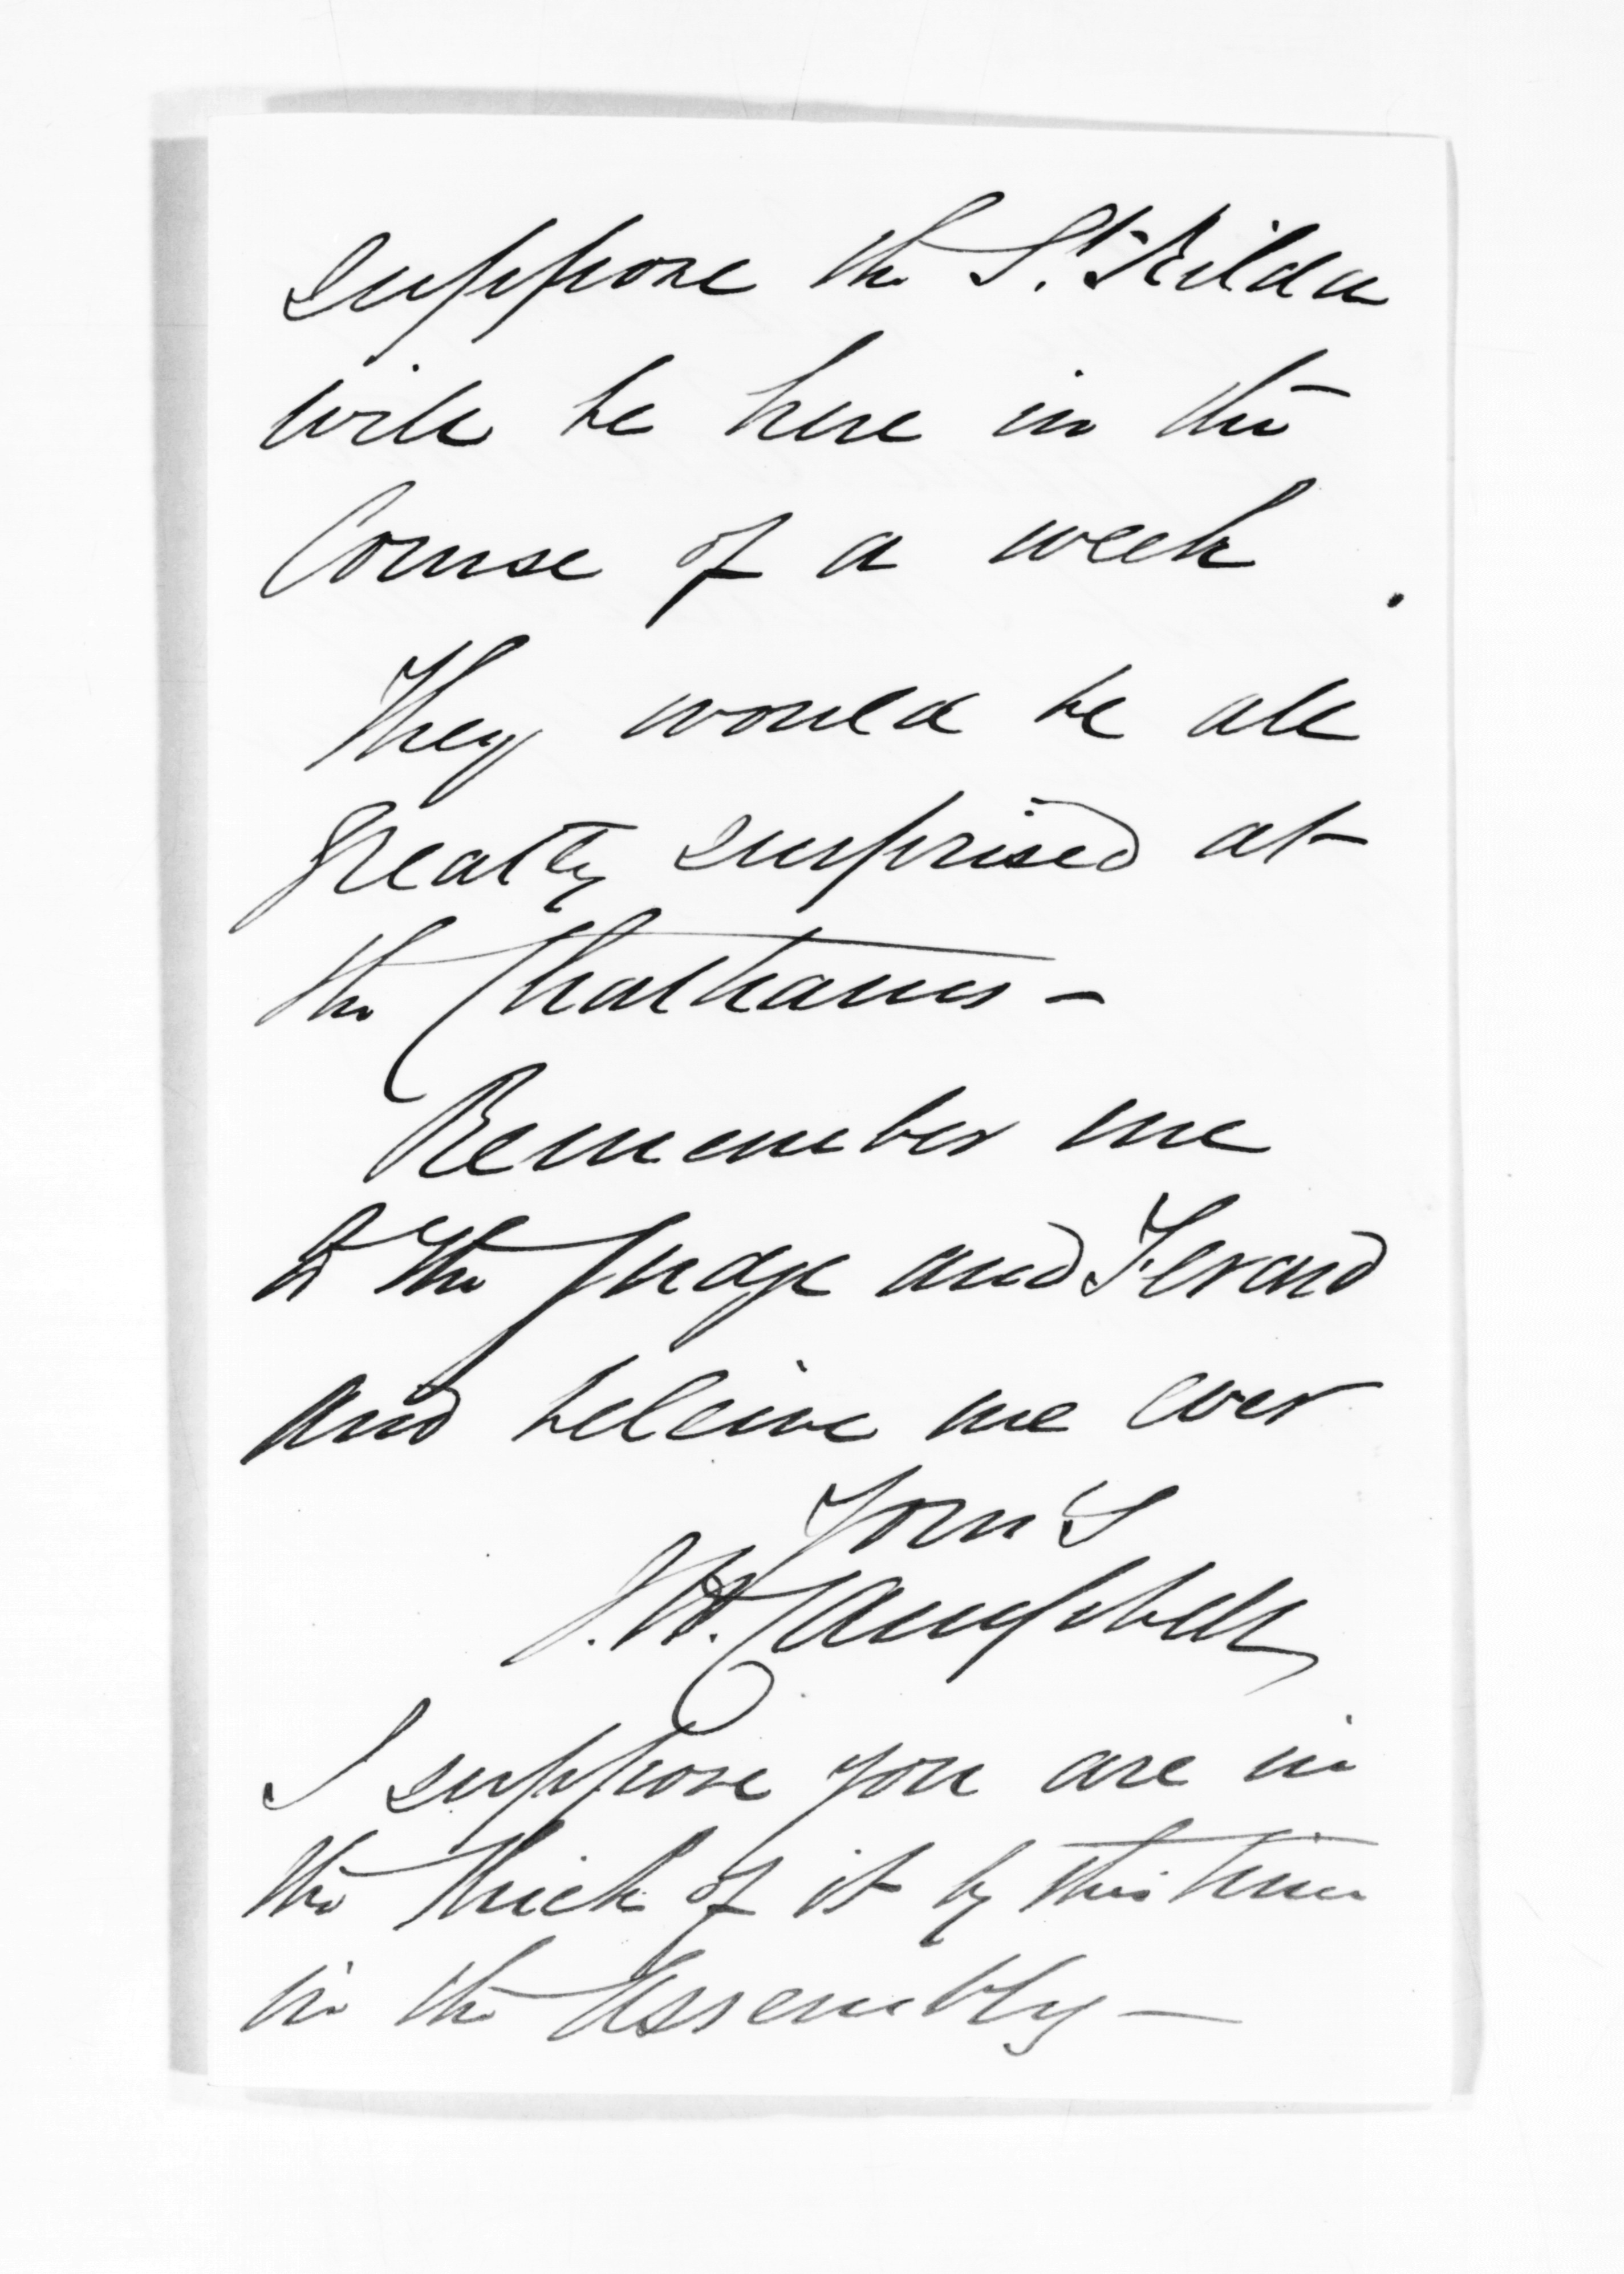 suppose the St. Kilda
will be here in the
Course of a week.
They would be all
greatly surprised at
the Chathams -
Remember me
to the Judge and
and beleive me ever
Yours
J.W. Campbell
I suppose you are in
the thick of it by this time
in the Assembly -